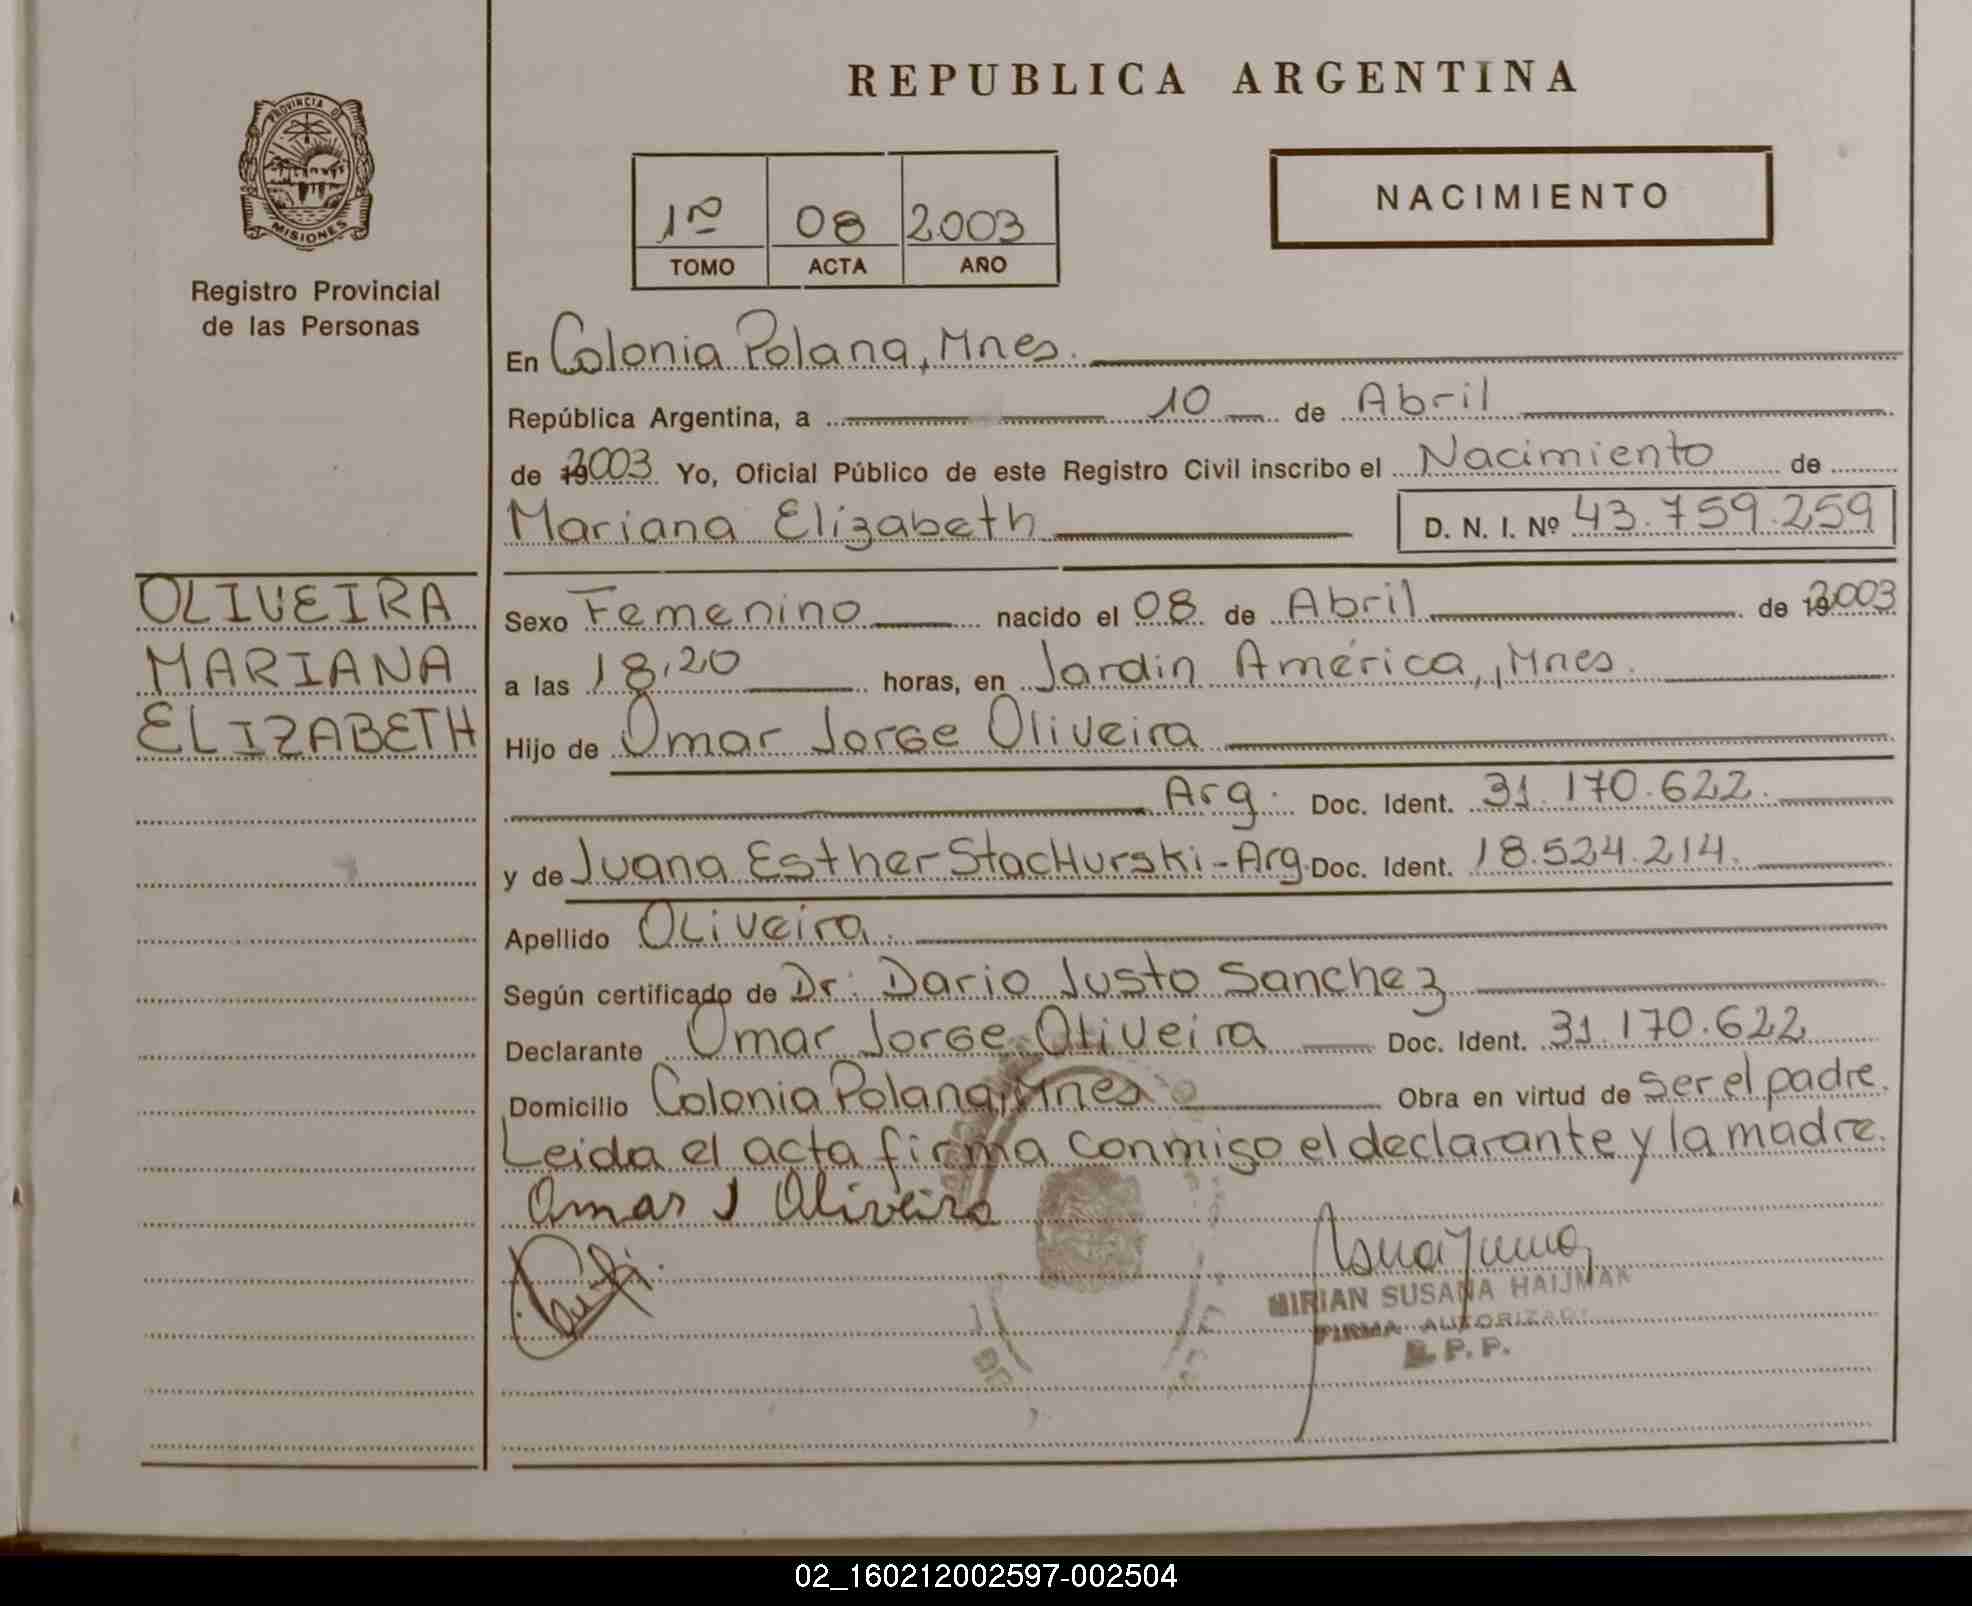 REPUBLICA ARGENTINA
PROVINCIA DE
MISIONES
Registro Provincial
de las Personas
1º 08 2003
TOMO ACTA AÑO
NACIMIENTO
En Colonia Polana, Mnes.
República Argentina, a 10 de Abril
de 192003 Yo, Oficial Público de este Registro Civil inscribo el Nacimiento de
Mariana Elizabeth D. N. I. Nº 43.759.259
OLIVEIRA
MARIANA
ELIZABETH
Sexo Femenino nacido el 08 de Abril de 192003
a las 18,20 horas, en Jardin América, Mnes.
Hijo de Omar Jorge Oliveira
Arg. Doc. Ident. 31.170.622.
y de Juana Esther Stachurski - Arg. Doc. Ident. 18.524.214.
Apellido Oliveira.
Según certificado de Dr. Dario Justo Sanchez
Declarante Omar Jorge Oliveira Doc. Ident. 31.170.622
Domicilio Colonia Polana, Mnes Obra en virtud de ser el padre.
Leida el acta firma conmigo el declarante y la madre.
Omar J Oliveira
MIRIAN SUSANA HAIJMAN
FIRMA AUTORIZADA
R. P. P.
02_160212002597-002504